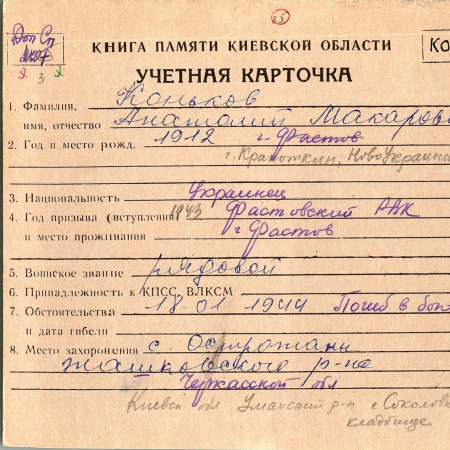 Доп Сп
КНИГА ПАМЯТИ КИЕВСКОЙ ОБЛАСТИ
УЧЕТНАЯ КАРТОЧКА
1. Фамилия, Коньков
имя, отчество Анатолий Макаров
2. Год и место рожд. 1912 г. Фастов
г. Крапоткин, Ново Украин
3. Национальность Украинец
4. Год призыва (вступления) 1943 Фастовский РВК
и место проживания г Фастов
5. Воинское звание рядовой
6. Принадлежность к КПСС, ВЛКСМ
7. Обстоятельства 18.01 1944 Погиб в бою
и дата гибели
8. Место захоронения с. Острожаны
Жашковского р-на
Черкасской обл
Киевск обл Уманский р-н с Соколов
кладбище